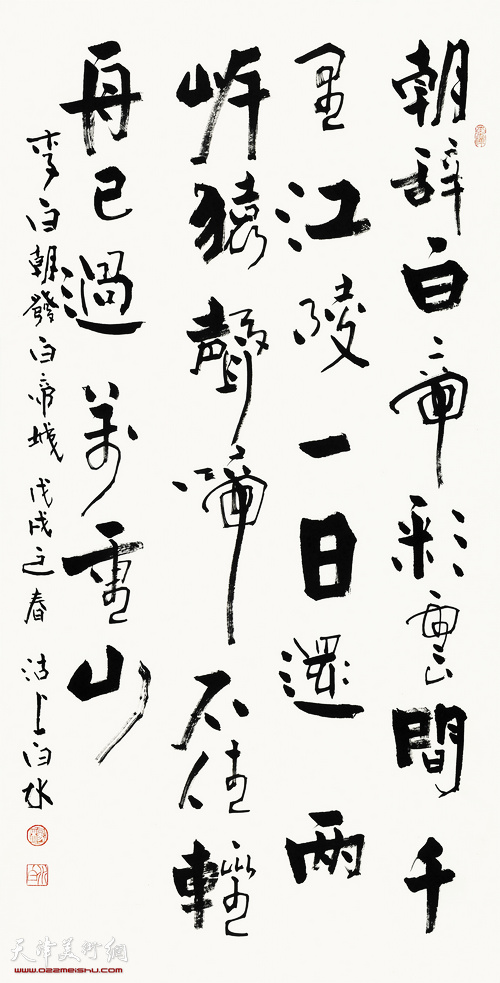 朝辞白帝彩雲間千
里江陵一日還兩
岸猿聲啼不住輕
舟已過萬重山
李白朝發白帝城 戊戌之春 沽上白水
天津美術網
www.022meishu.com